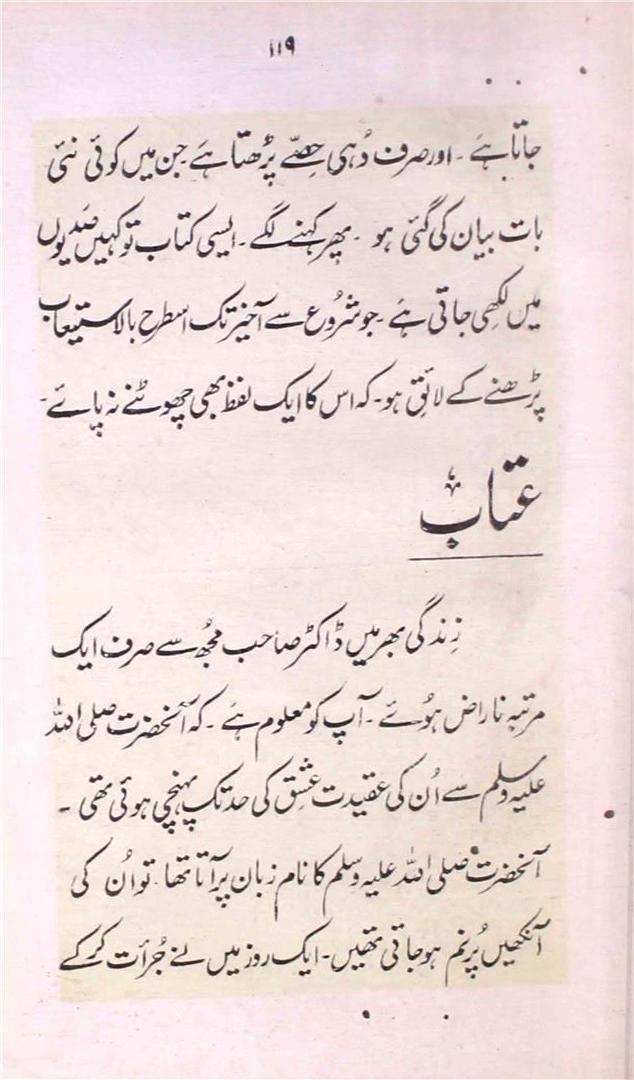 ۱۱۹
جاتا ہے ۔ اور صرف وُہی حِصّے پڑھتا ہے جن میں کوئی نئی
بات بیان کی گئی ہو ۔ پھر کہنے لگے ۔ ایسی کتاب تو کہیں صدیوں
میں لکھی جاتی ہے ۔ جو شروع سے آخیر تک اسطرح بالاستیعاب
پڑھنے کے لائق ہو ۔ کہ اس کا ایک لفظ بھی چھوٹنے نہ پائے ۔
عتاب
زندگی بھر میں ڈاکٹر صاحب مجھُ سے صرف ایک
مرتبہ ناراض ہوُئے ۔ آپ کو معلوم ہے ۔ کہ آنحضرت صلی اللہ
علیہ وسلم سے اُن کی عقیدت عشق کی حد تک پہنچی ہوئی تھی ۔
آنحضرت صلی اللہ علیہ وسلم کا نام زبان پر آتا تھا ۔ تو اُن کی
آنکھیں پُرنم ہو جاتی تھیں ۔ ایک روز میں نے جُرأت کر کے